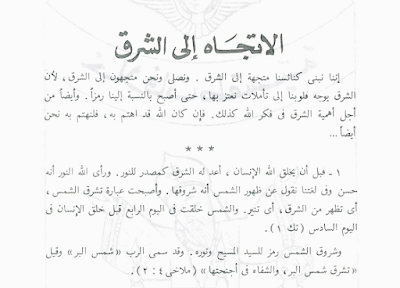 الاتجاه إلى الشرق
إننا نبنى كنائسنا متجهة إلى الشرق . ونصلى ونحن متجهون إلى الشرق ، لأن
الشرق يوجه قلوبنا إلى تأملات نعتز بها ، حتى أصبح بالنسبة إلينا رمزاً . وأيضاً من
أجل أهمية الشرق فى فكر الله كذلك . فإن كان الله قد اهتم به ، فلنهتم به نحن
أيضاً ...
* * *
١ – فقبل أن يخلق الله الإنسان ، أعد له الشرق كمصدر للنور . ورأى الله النور أنه
حسن وفى لغتنا نقول عن ظهور الشمس أنه شروقها . وأصبحت عبارة تشرق الشمس ،
أى تظهر من الشرق ، أى تنير . والشمس خلقت فى اليوم الرابع قبل خلق الإنسان فى
اليوم السادس ( تك ١ ) .
وشروق الشمس رمز للسيد المسيح ونوره . وقد سمى الرب « شمس البر » وقيل
« تشرق شمس البر ، والشفاء فى أجنحتها » ( ملاخى ٤ : ٢ ) .